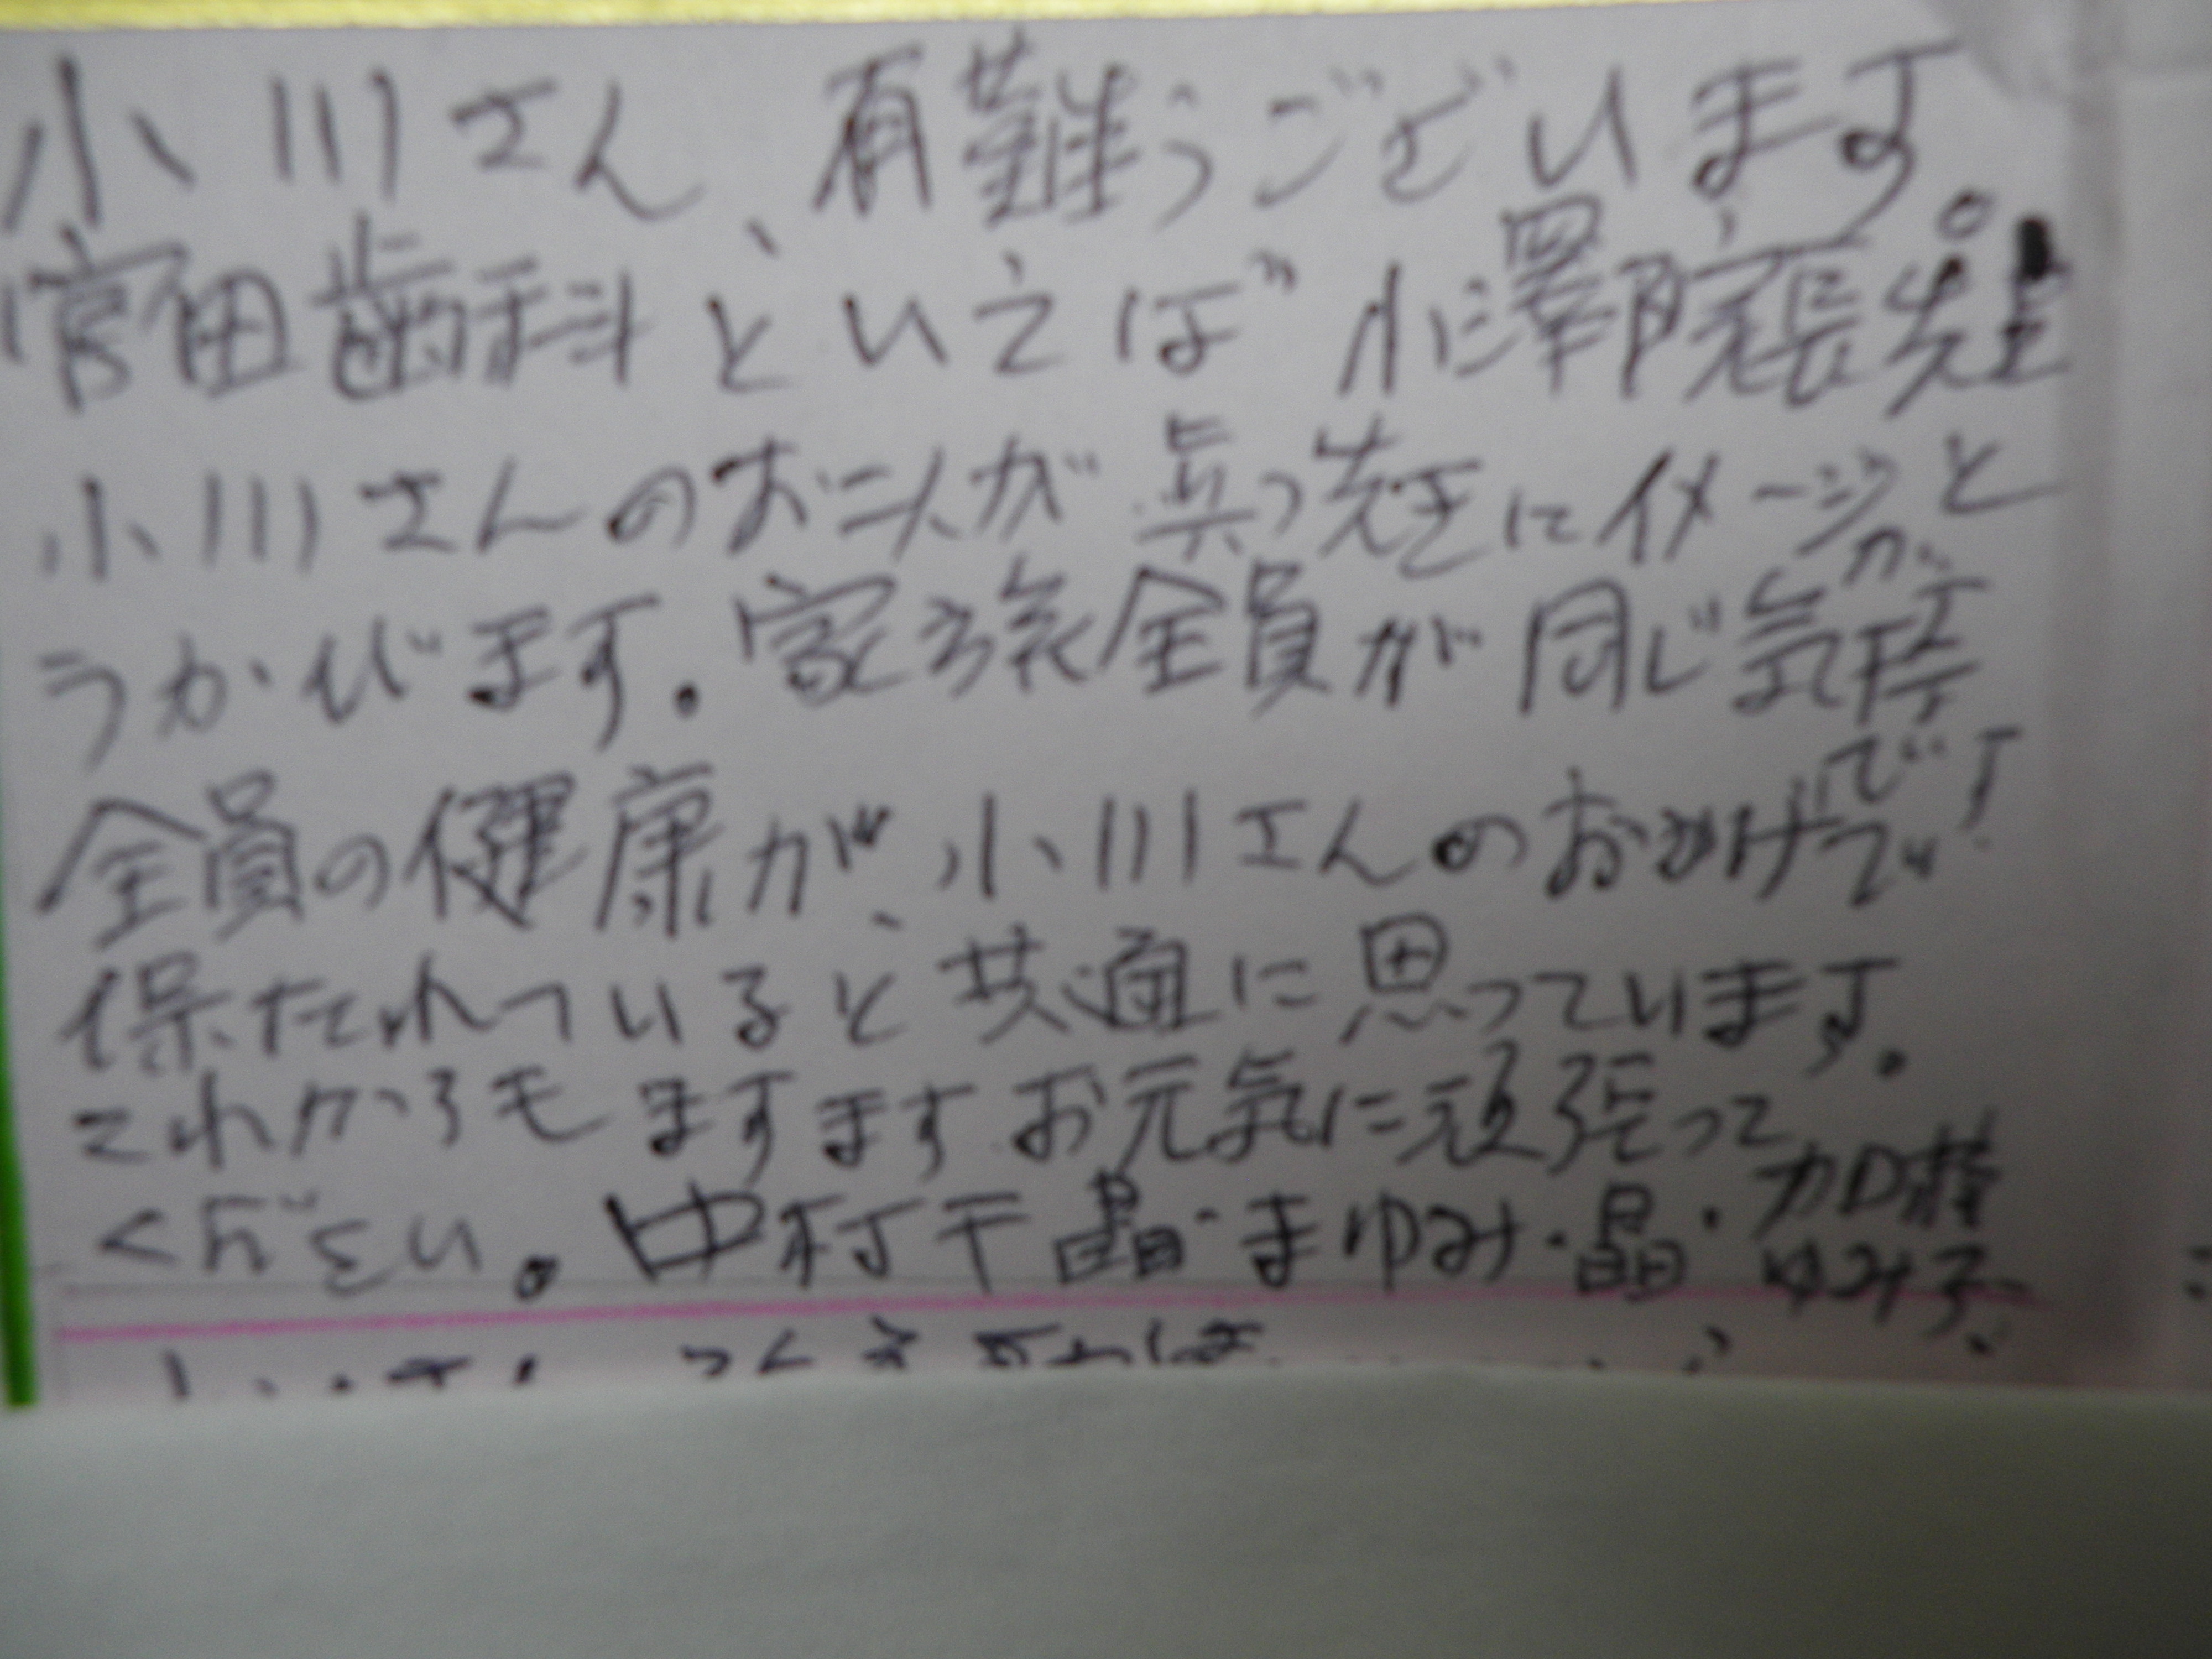 小川さん、有難うございます。
宮田歯科といえば小澤院長先生
小川さんのお二人が真っ先にイメージと
うかびます。家族全員が同じ気持
がです
全員の健康が、小川さんのおかげで
保たれていると共通に思っています。
これからもますますお元気に頑張って
ください。中村千晶・まゆみ・晶・加
ゆみ子